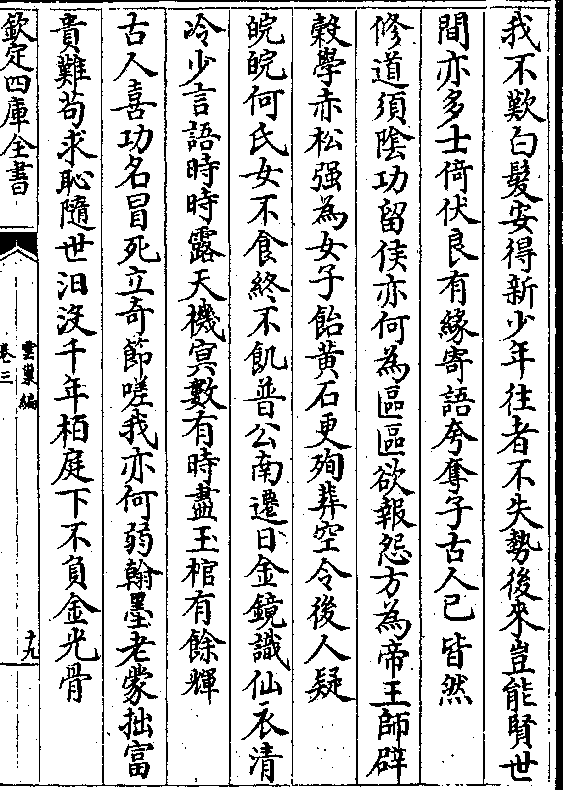 我不歎白髮安得新少年往者不失勢後來豈能賢世
間亦多士倚伏良有緣寄語夸奪子古人已皆然
修道須陰功留侯亦何為區區欲報怨方為帝王師辟
穀學赤松强為女子飴黄石更殉葬空令後人疑
皖皖何氏女不食終不飢普公南遷日金鏡識仙衣清
冷少言語時時露天機㝠數有時盡玉棺有餘輝
古人喜功名冒死立奇節嗟我亦何弱翰墨老蒙拙富
貴難苟求恥隨世汨沒千年栢庭下不負金光骨
欽定四庫全書
雲巢編
卷三
十九